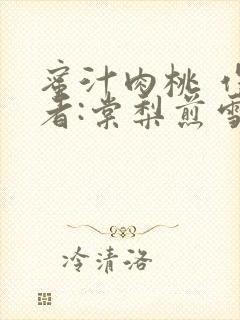 蜜汁肉桃 作
者:棠梨煎雪
冷清洛